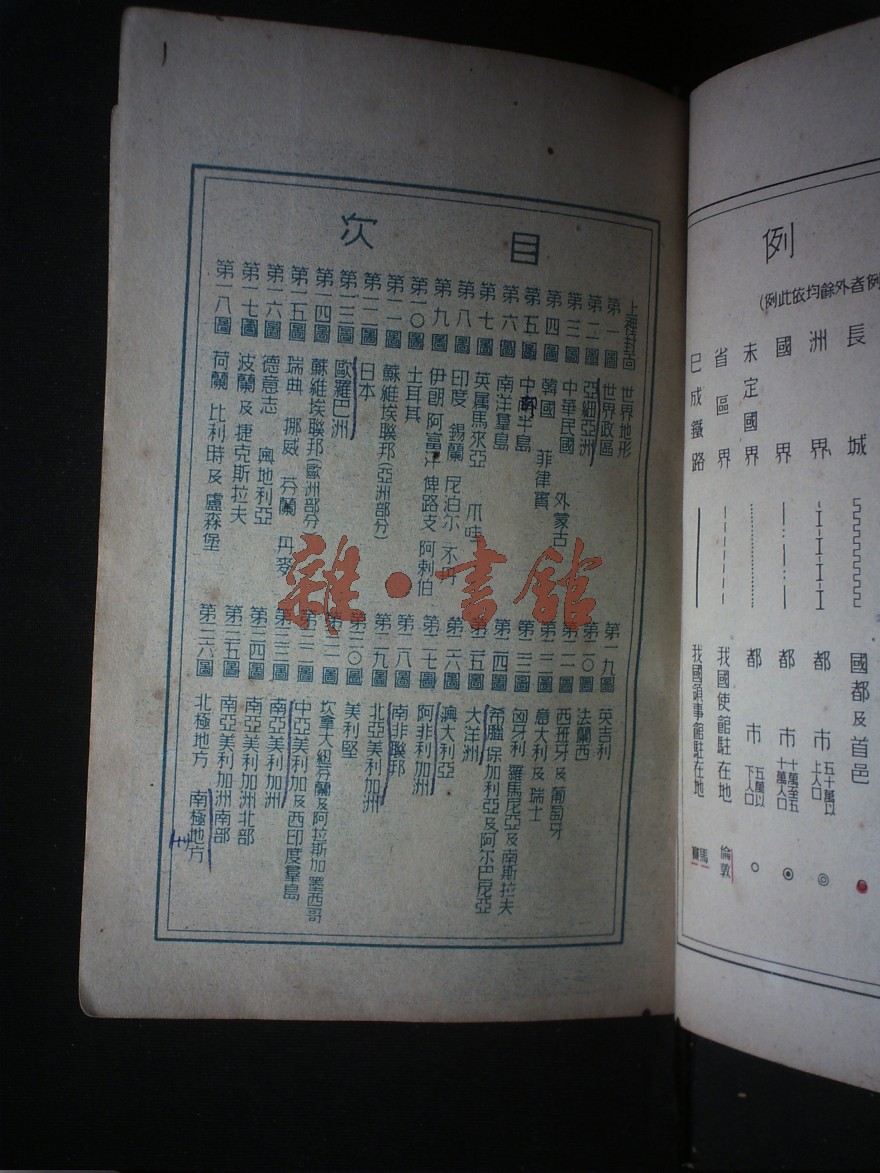 例
例者外餘均依此例)
長城
洲界
國界
未定國界
省區界
已成鐵路
國都及首邑
都市 五十萬以上人口
都市 十萬至五十萬人口
都市 五萬以下人口
我國使館駐在地 倫敦
我國領事館駐在地 馬賽
目次
上裡封面 世界地形
第一圖 世界政區
第二圖 亞細亞洲
第三圖 中華民國 外蒙古
第四圖 韓國 菲律賓
第五圖 中南半島
第六圖 南洋羣島
第七圖 英属馬來亞 爪哇
第八圖 印度 錫蘭 尼泊尔 不丹
第九圖 伊朗 阿富汗 俾路支 阿剌伯
第一〇圖 土耳其
第一一圖 蘇維埃聯邦(亞洲部分)
第一二圖 日本
第一三圖 歐羅巴洲
第一四圖 蘇維埃聯邦(歐洲部分)
第一五圖 瑞典 挪威 芬蘭 丹麥
第一六圖 德意志 奧地利亞
第一七圖 波蘭及捷克斯拉夫
第一八圖 荷蘭 比利時及盧森堡
第一九圖 英吉利
第二〇圖 法蘭西
第二一圖 西班牙及葡萄牙
第二二圖 意大利及瑞士
第二三圖 匈牙利 羅馬尼亞及南斯拉夫
第二四圖 希臘 保加利亞及阿尔巴尼亞
第二五圖 大洋洲
第二六圖 澳大利亞
第二七圖 阿非利加洲
第二八圖 南非聯邦
第二九圖 北亞美利加洲
第三〇圖 美利堅
第三一圖 坎拿大紐芬蘭及阿拉斯加 墨西哥
第三二圖 中亞美利加及西印度羣島
第三三圖 南亞美利加洲
第三四圖 南亞美利加洲北部
第三五圖 南亞美利加洲南部
第三六圖 北極地方 南極地方
雜·書館